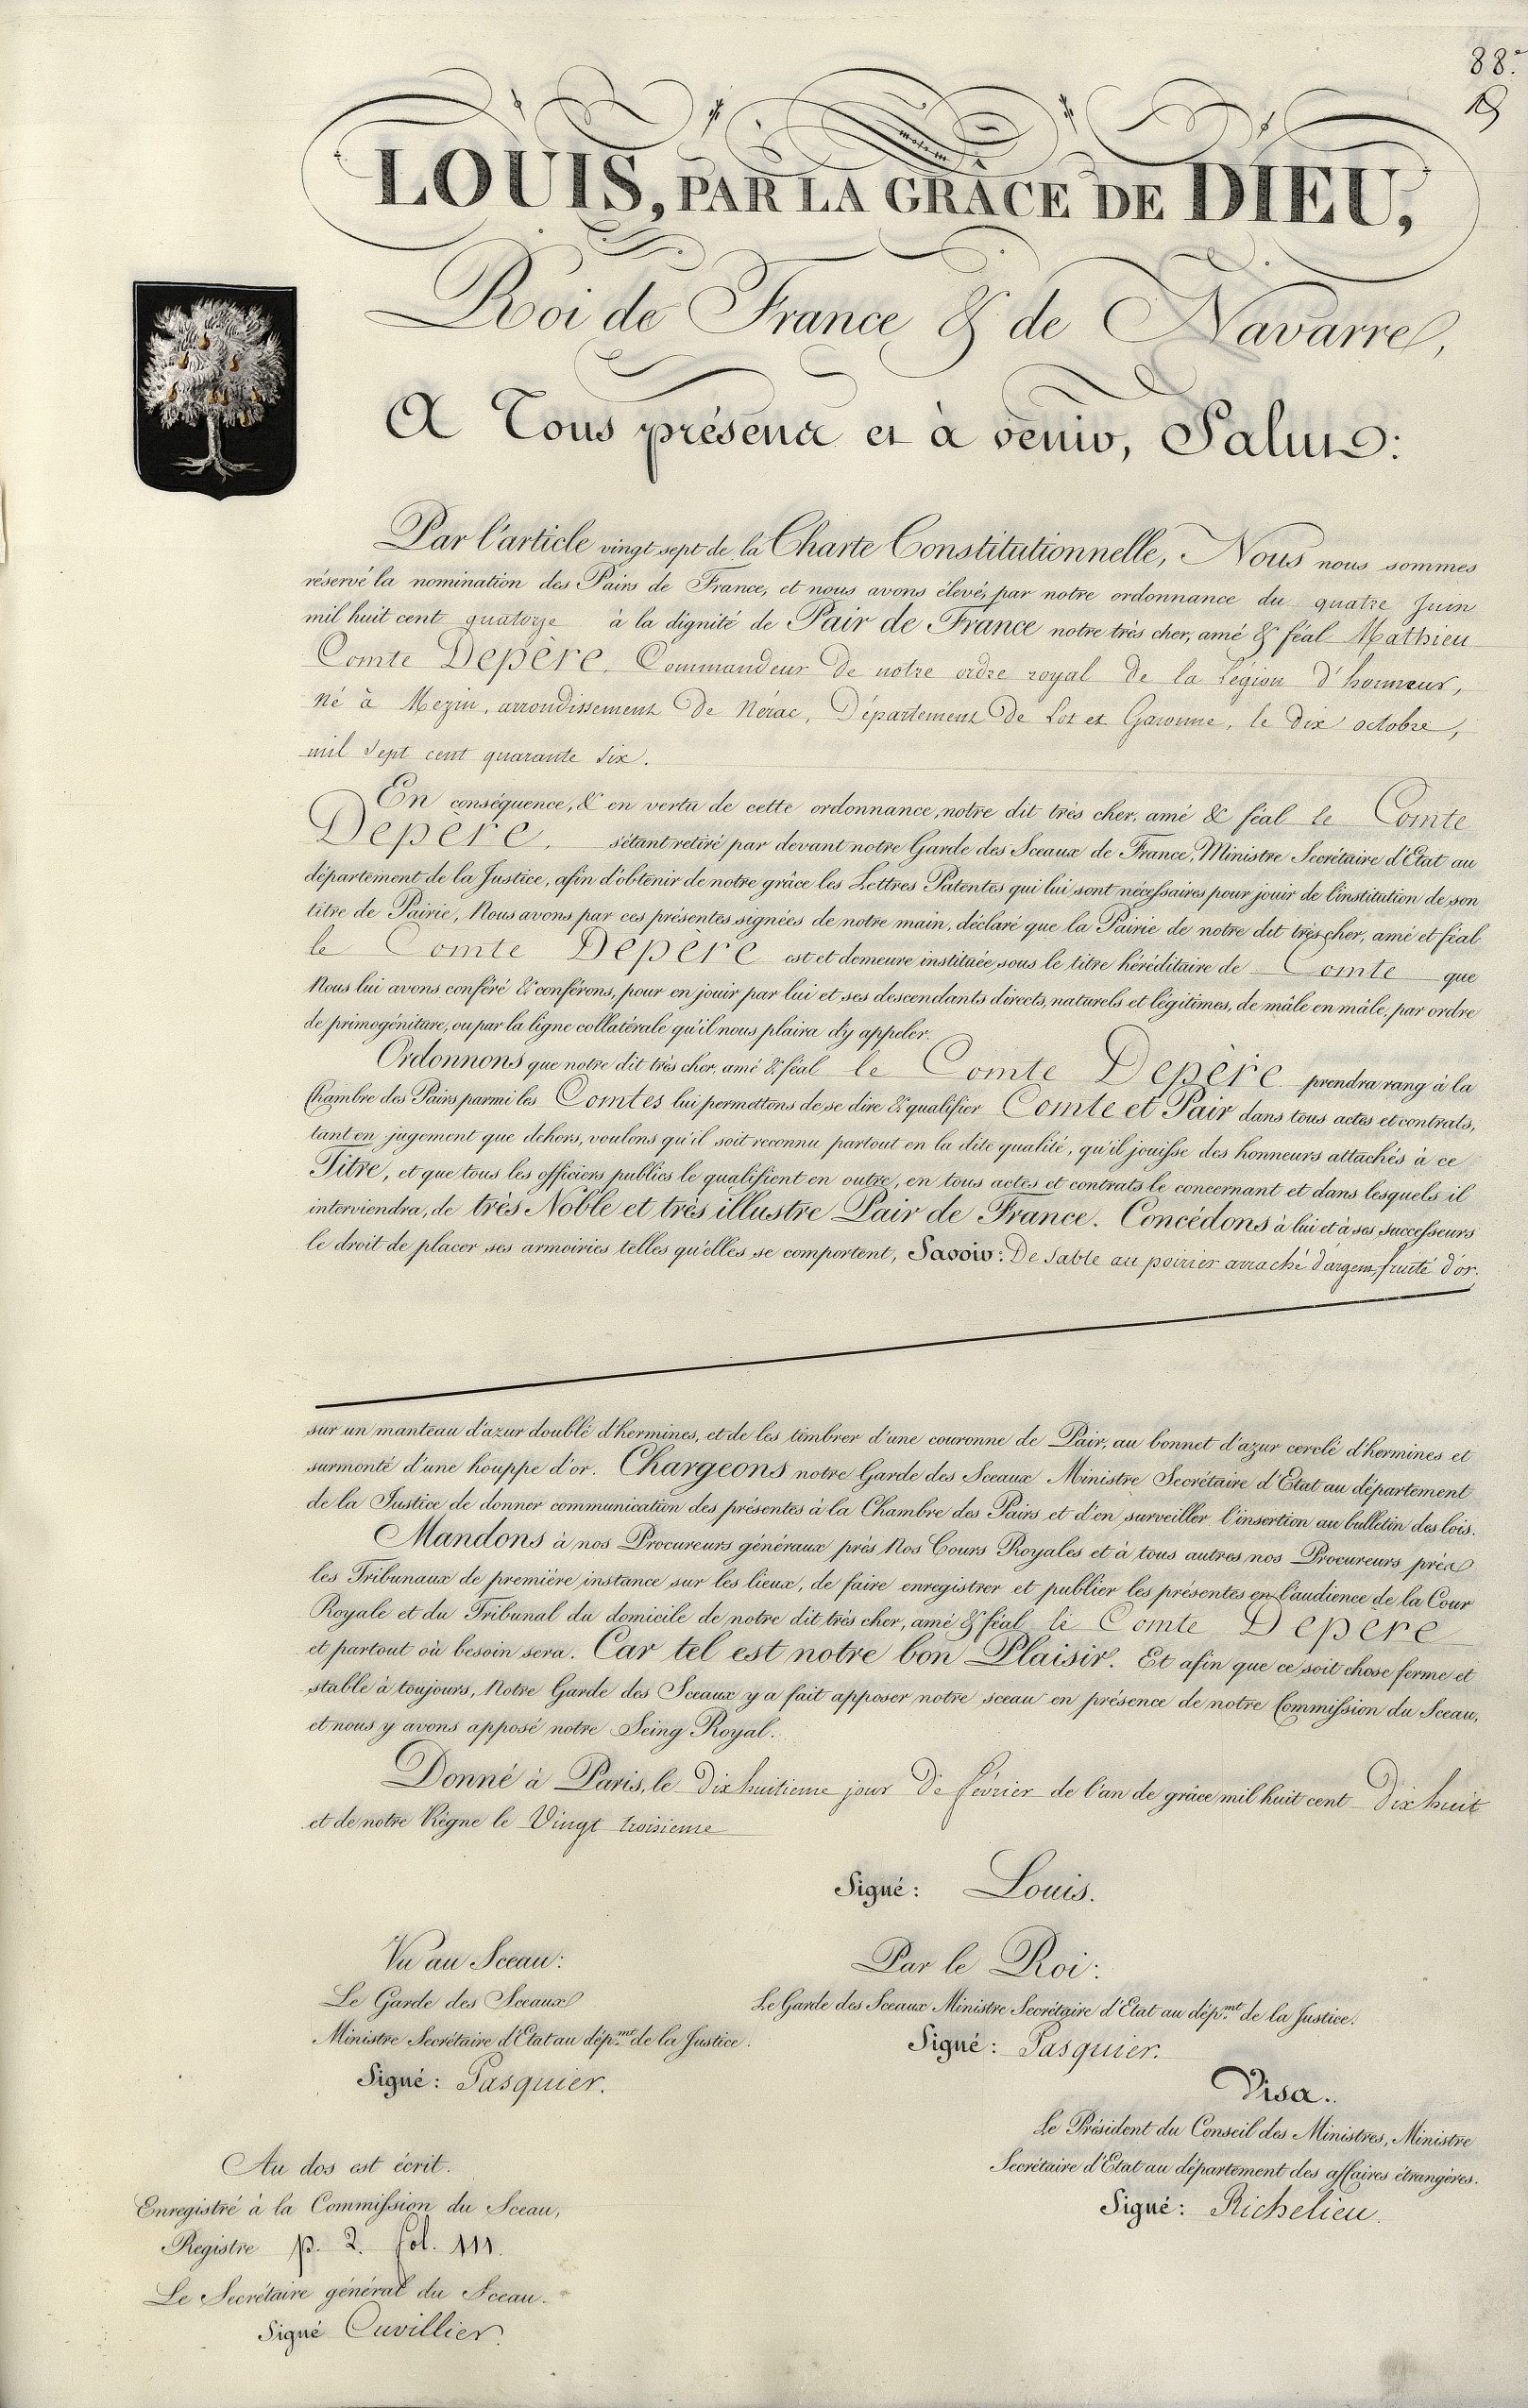 88.
LOUIS, PAR LA GRÂCE DE DIEU,
Roi de France & de Navarre,
A Tous présens et à venir, Salut:
Par l'article vingt sept de la Charte Constitutionnelle, Nous nous sommes
réservé la nomination des Pairs de France, et nous avons élevé, par notre ordonnance du quatre Juin
mil huit cent quatorze à la dignité de Pair de France notre très cher, amé & féal Mathieu
Comte Depère, Commandeur de notre ordre royal de la Légion d'honneur,
né à Mezin, arrondissement de Nérac, Département de Lot et Garonne, le dix octobre,
mil sept cent quarante six.
En conséquence, & en vertu de cette ordonnance, notre dit très cher, amé & féal le Comte
Depère, s'étant retiré par devant notre Garde des Sceaux de France, Ministre Secrétaire d'Etat au
département de la Justice, afin d'obtenir de notre grâce les Lettres Patentes qui lui sont nécessaires pour jouir de l'institution de son
titre de Pairie, Nous avons par ces présentes signées de notre main, déclaré que la Pairie de notre dit très cher, amé et féal
le Comte Depère est et demeure instituée sous le titre héréditaire de Comte que
Nous lui avons conféré & conférons, pour en jouir par lui et ses descendants directs, naturels et légitimes, de mâle en mâle, par ordre
de primogéniture, ou par la ligne collatérale qu'il nous plaira d'y appeler.
Ordonnons que notre dit très cher, amé & féal le Comte Depère prendra rang à la
Chambre des Pairs parmi les Comtes lui permettons de se dire & qualifier Comte et Pair dans tous actes et contrats,
tant en jugement que dehors, voulons qu'il soit reconnu partout en la dite qualité, qu'il jouisse des honneurs attachés à ce
Titre, et que tous les officiers publics le qualifient en outre, en tous actes et contrats le concernant et dans lesquels il
interviendra, de très Noble et très illustre Pair de France. Concédons à lui et à ses successeurs
le droit de placer ses armoiries telles qu'elles se comportent, Savoir: De sable au poirier arraché d'argent, fruité d'or.
sur un manteau d'azur doublé d'hermines, et de les timbrer d'une couronne de Pair, au bonnet d'azur cerclé d'hermines et
surmonté d'une houppe d'or. Chargeons notre Garde des Sceaux Ministre Secrétaire d'Etat au département
de la Justice de donner communication des présentes à la Chambre des Pairs et d'en surveiller l'insertion au bulletin des lois.
Mandons à nos Procureurs généraux près Nos Cours Royales et à tous autres nos Procureurs près
les Tribunaux de première instance sur les lieux, de faire enregistrer et publier les présentes en l'audience de la Cour
Royale et du Tribunal du domicile de notre dit très cher, amé & féal le Comte Depère
et partout où besoin sera. Car tel est notre bon Plaisir. Et afin que ce soit chose ferme et
stable à toujours, Notre Garde des Sceaux y a fait apposer notre sceau en présence de notre Commission du Sceau,
et nous y avons apposé notre Seing Royal.
Donné à Paris, le dix huitieme jour de février de l'an de grâce mil huit cent dix huit
et de notre Règne le Vingt troisieme
Signé: Louis.
Vu au Sceau:
Le Garde des Sceaux
Ministre Secrétaire d'Etat au dép.mt de la Justice.
Signé: Pasquier.
Par le Roi:
Le Garde des Sceaux Ministre Secrétaire d'Etat au dép.mt de la Justice.
Signé: Pasquier.
Visa.
Le Président du Conseil des Ministres, Ministre
Secrétaire d'Etat au département des affaires étrangères.
Signé: Richelieu.
Au dos est écrit.
Enregistré à la Commission du Sceau,
Registre p. 2. fol. 111.
Le Secrétaire général du Sceau.
Signé Cuvillier.